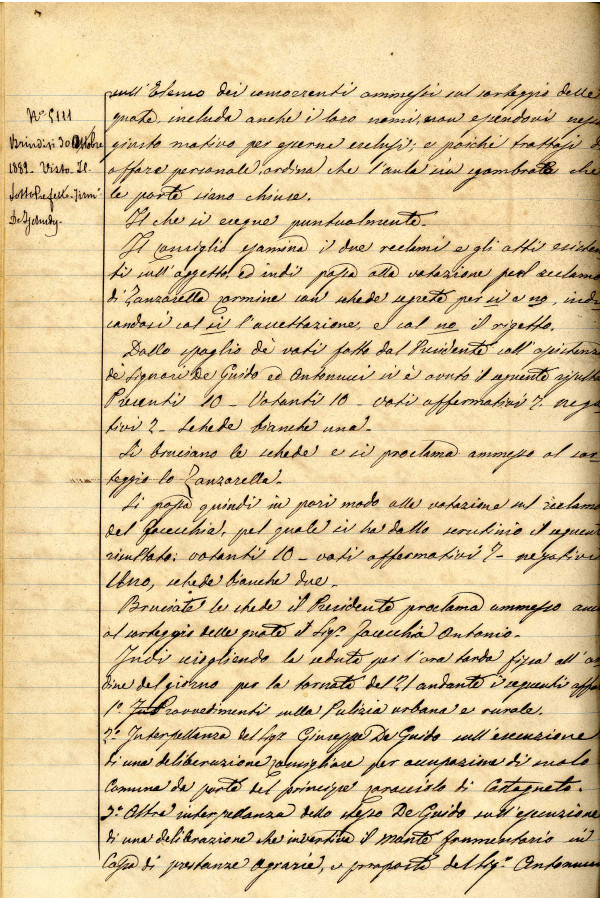 N.º 5111
Brindisi 30 Ottobre
1889 - Visto Il
Sotto Prefetto - Firm.
sull'Elenco dei concorrenti ammessi sul sorteggio delle
quote, includa anche i loro nomi, non essendovi ness
giusto motivo per esserne esclusi; e poichè trattasi di
affare personale, ordina che l'aula sia sgombrata e che
le porte siano chiuse.
Il che si esegue puntualmente.
Il Consiglio esamina i due reclami e gli atti esisten
ti sull'oggetto, ed indi passa alla votazione pel reclamo
di Zanzarella Carmine con schede segrete per si e no, indi
candosi col si l'accettazione, e col no il rigetto.
Dallo spoglio de' voti fatto dal Presidente coll'assistenza
de' Signori De Guido ed Antonucci si è avuto il seguente risulta
Presenti 10 - Votanti 10 - voti affermativi 7 - nega
tivi 2 - schede bianche una.
Si bruciano le schede e si proclama ammesso al sor
teggio lo Zanzarella.
Si passa quindi in pari modo alla votazione sul reclamo
del Zacecchia, pel quale si ha dallo scrutinio il seguente
risultato: votanti 10 - voti affermativi 7 - negativi
Uno, schede bianche due.
Bruciate le schede il Presidente proclama ammesso anc
al sorteggio delle quote il Sig.r Zacecchia Antonio.
Indi sciogliendo la seduta per l'ora tarda fissa all'or
dine del giorno per la tornata del 21 andante i seguenti affari
1.º Provvedimenti sulla Pulizia urbana e rurale.
2.º Interpellanza del Sig.r Giuseppe De Guido sull'esecuzione
di una deliberazione consigliare per occupazione di suolo
Comuna da parte del principe
3.º Altra interpellanza dello stesso De Guido sull'esecuzione
di una deliberazione che invertiva il Monte frumentario in
Cassa di prestanze agrarie, e proposta del Sig.r Antonucci